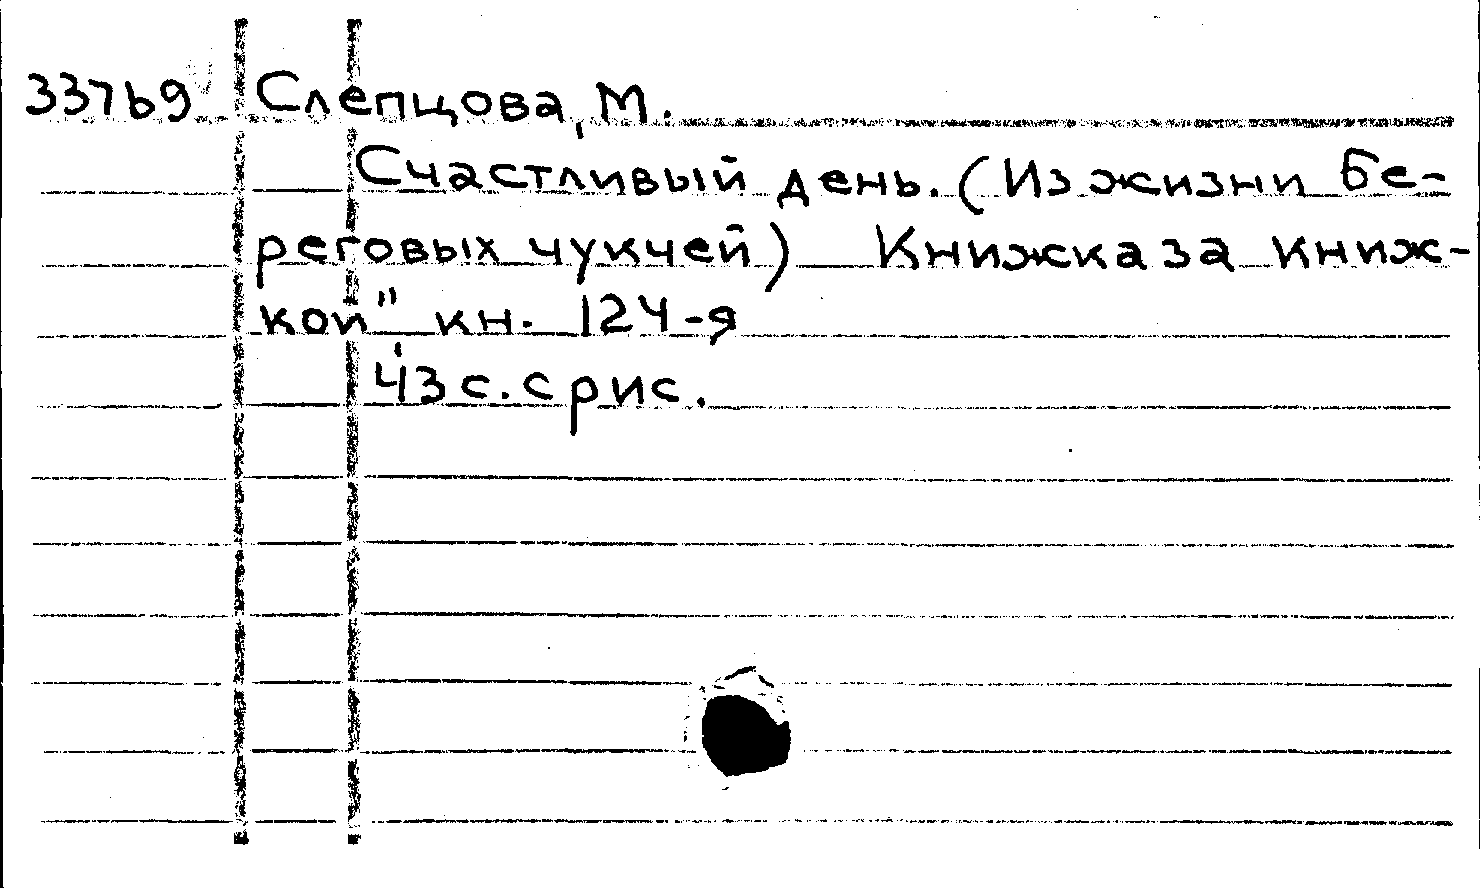 33769 Слепцова, М.
Счастливый день. (Из жизни бе-
реговых чукчей) Книжка за книж-
кой" кн. 124-я
43 с. с рис.